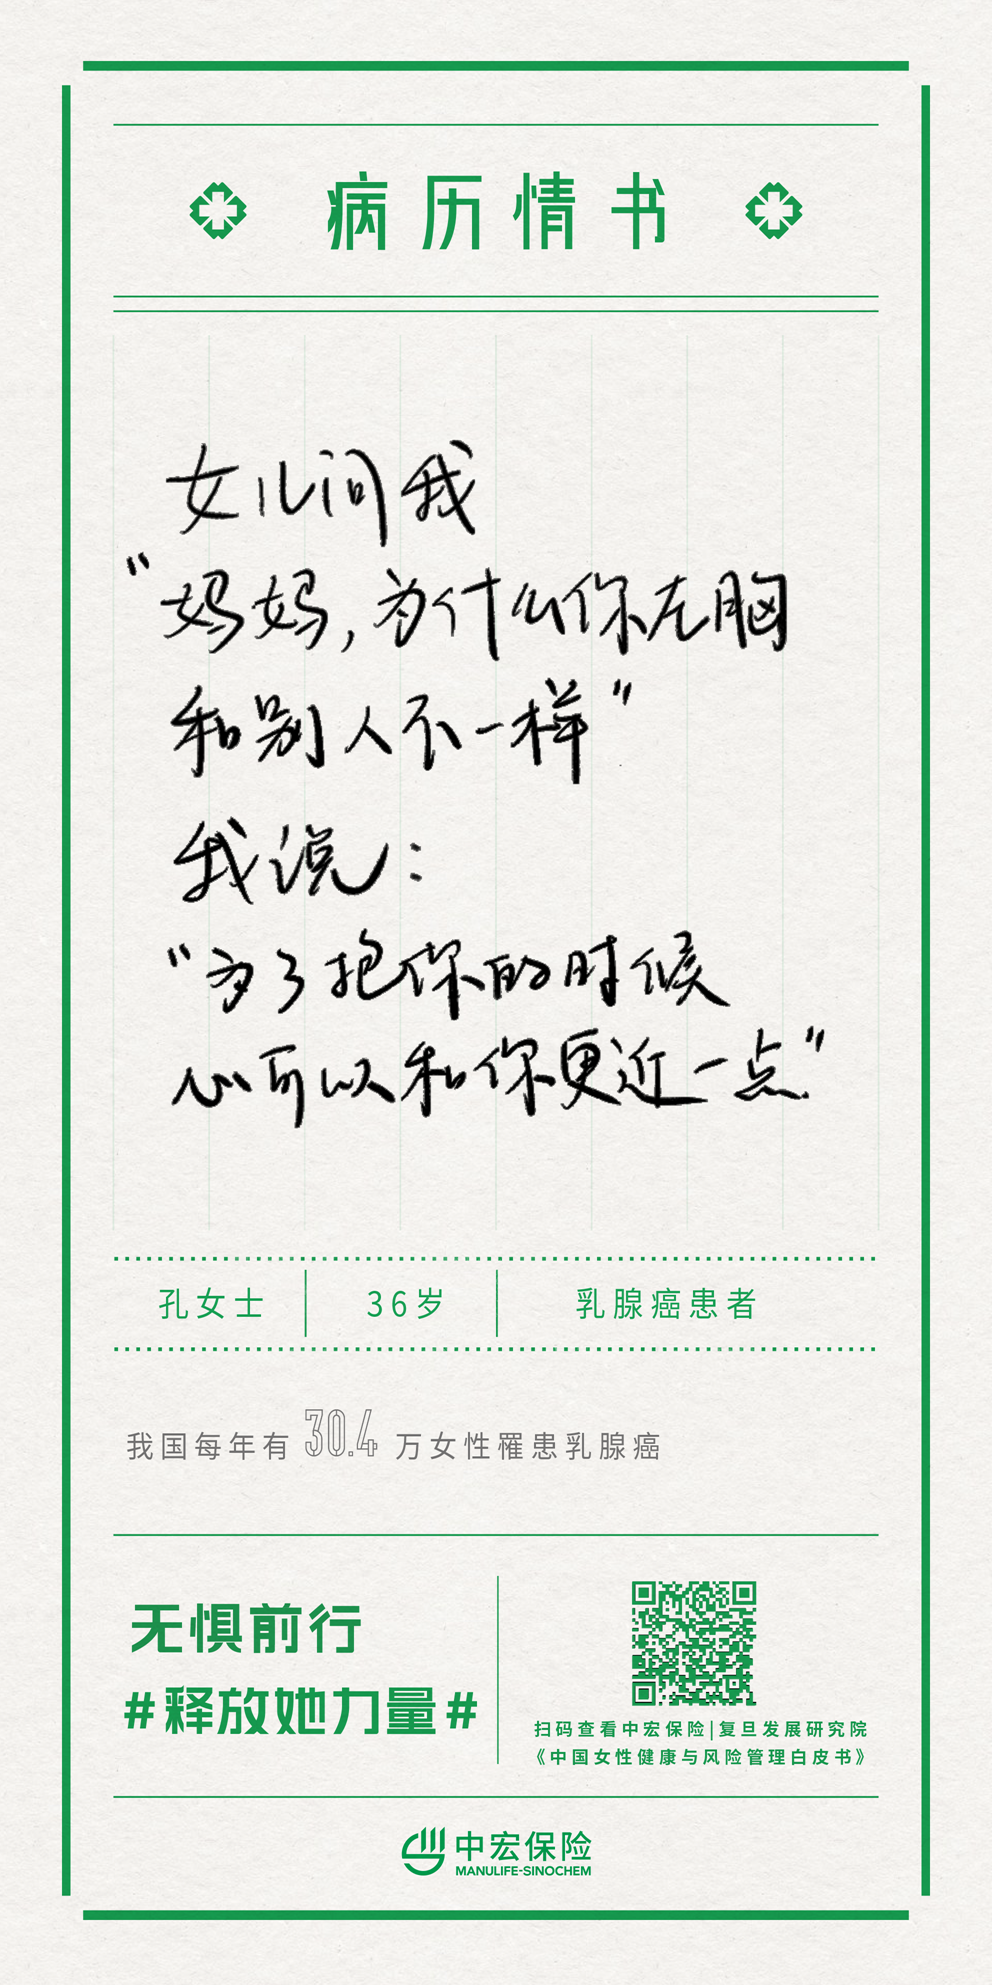 病历情书
女儿问我
“妈妈,为什么你左胸
和别人不一样”
我说:
“为了抱你的时候
心可以和你更近一点”
孔女士 36岁 乳腺癌患者
我国每年有30.4万女性罹患乳腺癌
无惧前行
#释放她力量#
扫码查看中宏保险|复旦发展研究院
《中国女性健康与风险管理白皮书》
中宏保险
MANULIFE-SINOCHEM